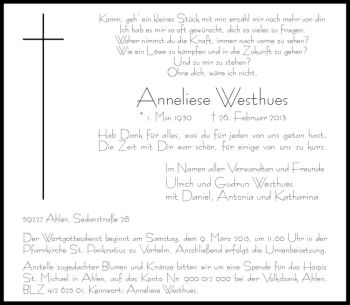 Komm, geh' ein kleines Stück mit mir, erzähl mir noch mehr von dir.
Ich hab es mir so oft gewünscht, dich so vieles zu fragen.
Woher nimmst du die Kraft, immer nach vorne zu sehen?
Wie ein Löwe zu kämpfen und in die Zukunft zu gehen?
Und zu mir zu stehen?
Ohne dich, wäre ich nicht.
Anneliese Westhues
* 1. Mai 1930 † 26. Februar 2013
Hab Dank für alles, was du für jeden von uns getan hast.
Die Zeit mit Dir war schön, für einige von uns zu kurz.
Im Namen aller Verwandten und Freunde
Ulrich und Gudrun Westhues
mit Daniel, Antonia und Katharina
59227 Ahlen, Sedanstraße 28
Der Wortgottesdienst beginnt am Samstag, dem 9. März 2013, um 11.00 Uhr in der
Pfarrkirche St. Pankratius zu Vorhelm. Anschließend erfolgt die Urnenbeisetzung.
Anstelle zugedachter Blumen und Kränze bitten wir um eine Spende für das Hospiz
St. Michael in Ahlen, auf das Konto Nr. 900 012 000 bei der Volksbank Ahlen,
BLZ 412 625 01, Kennwort: Anneliese Westhues.